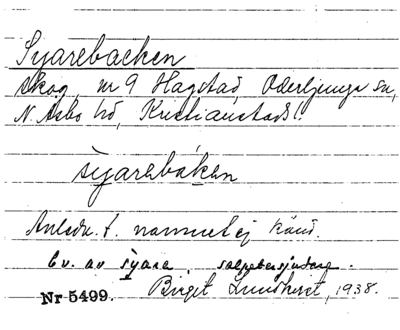 Syarebacken
Skog, nr 9 Hagstad, Oderljunga sn,
N. Asbo hd, Kristianstads l.
syarebaken
Anledn. t. namnet ej känd.
Ev. av syare, salpetersjudare.
Nr 5499. Birget 1938.